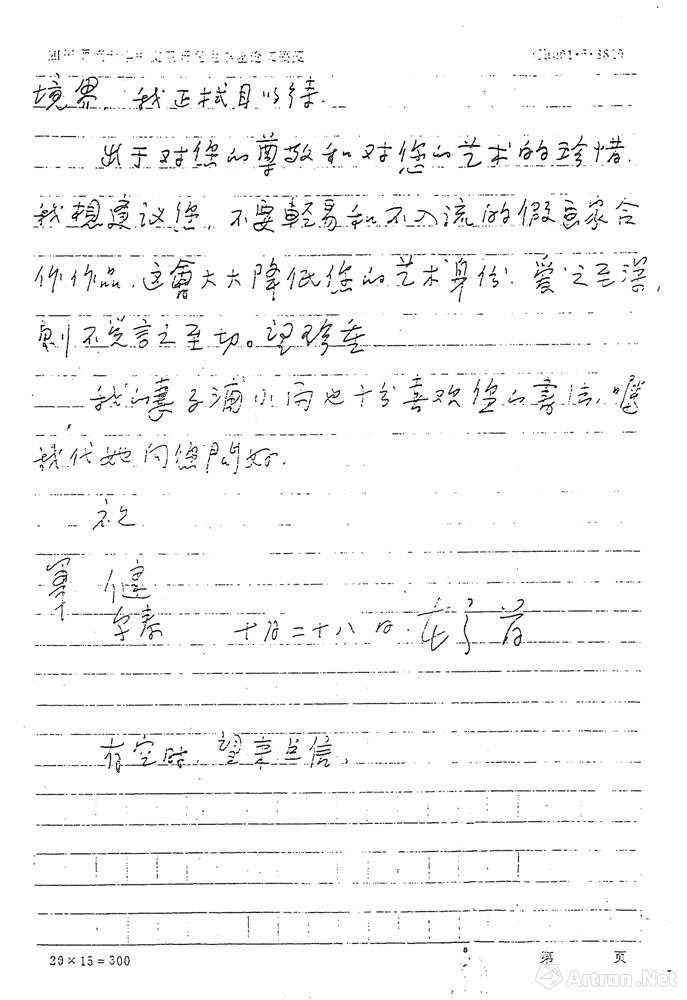 境界，我正拭目以待.
出于对您的尊敬和对您的艺术的珍惜.
我想建议您，不要輕易和不入流的假画家合
作作品.这會大大降低您的艺术身份.爱之至深，
則不觉言之至切。望珍重
我的妻子浦小雨也十分喜欢您的書法，嘱
我代她向您問好.
祝
筆健
字寿 十月二十八日.
有空时，望来点信，
29×15=300 第 页
Artron.Net